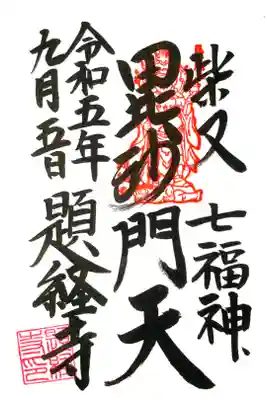 柴又 七福神
毘沙門天
題経寺
令和五年
九月五日